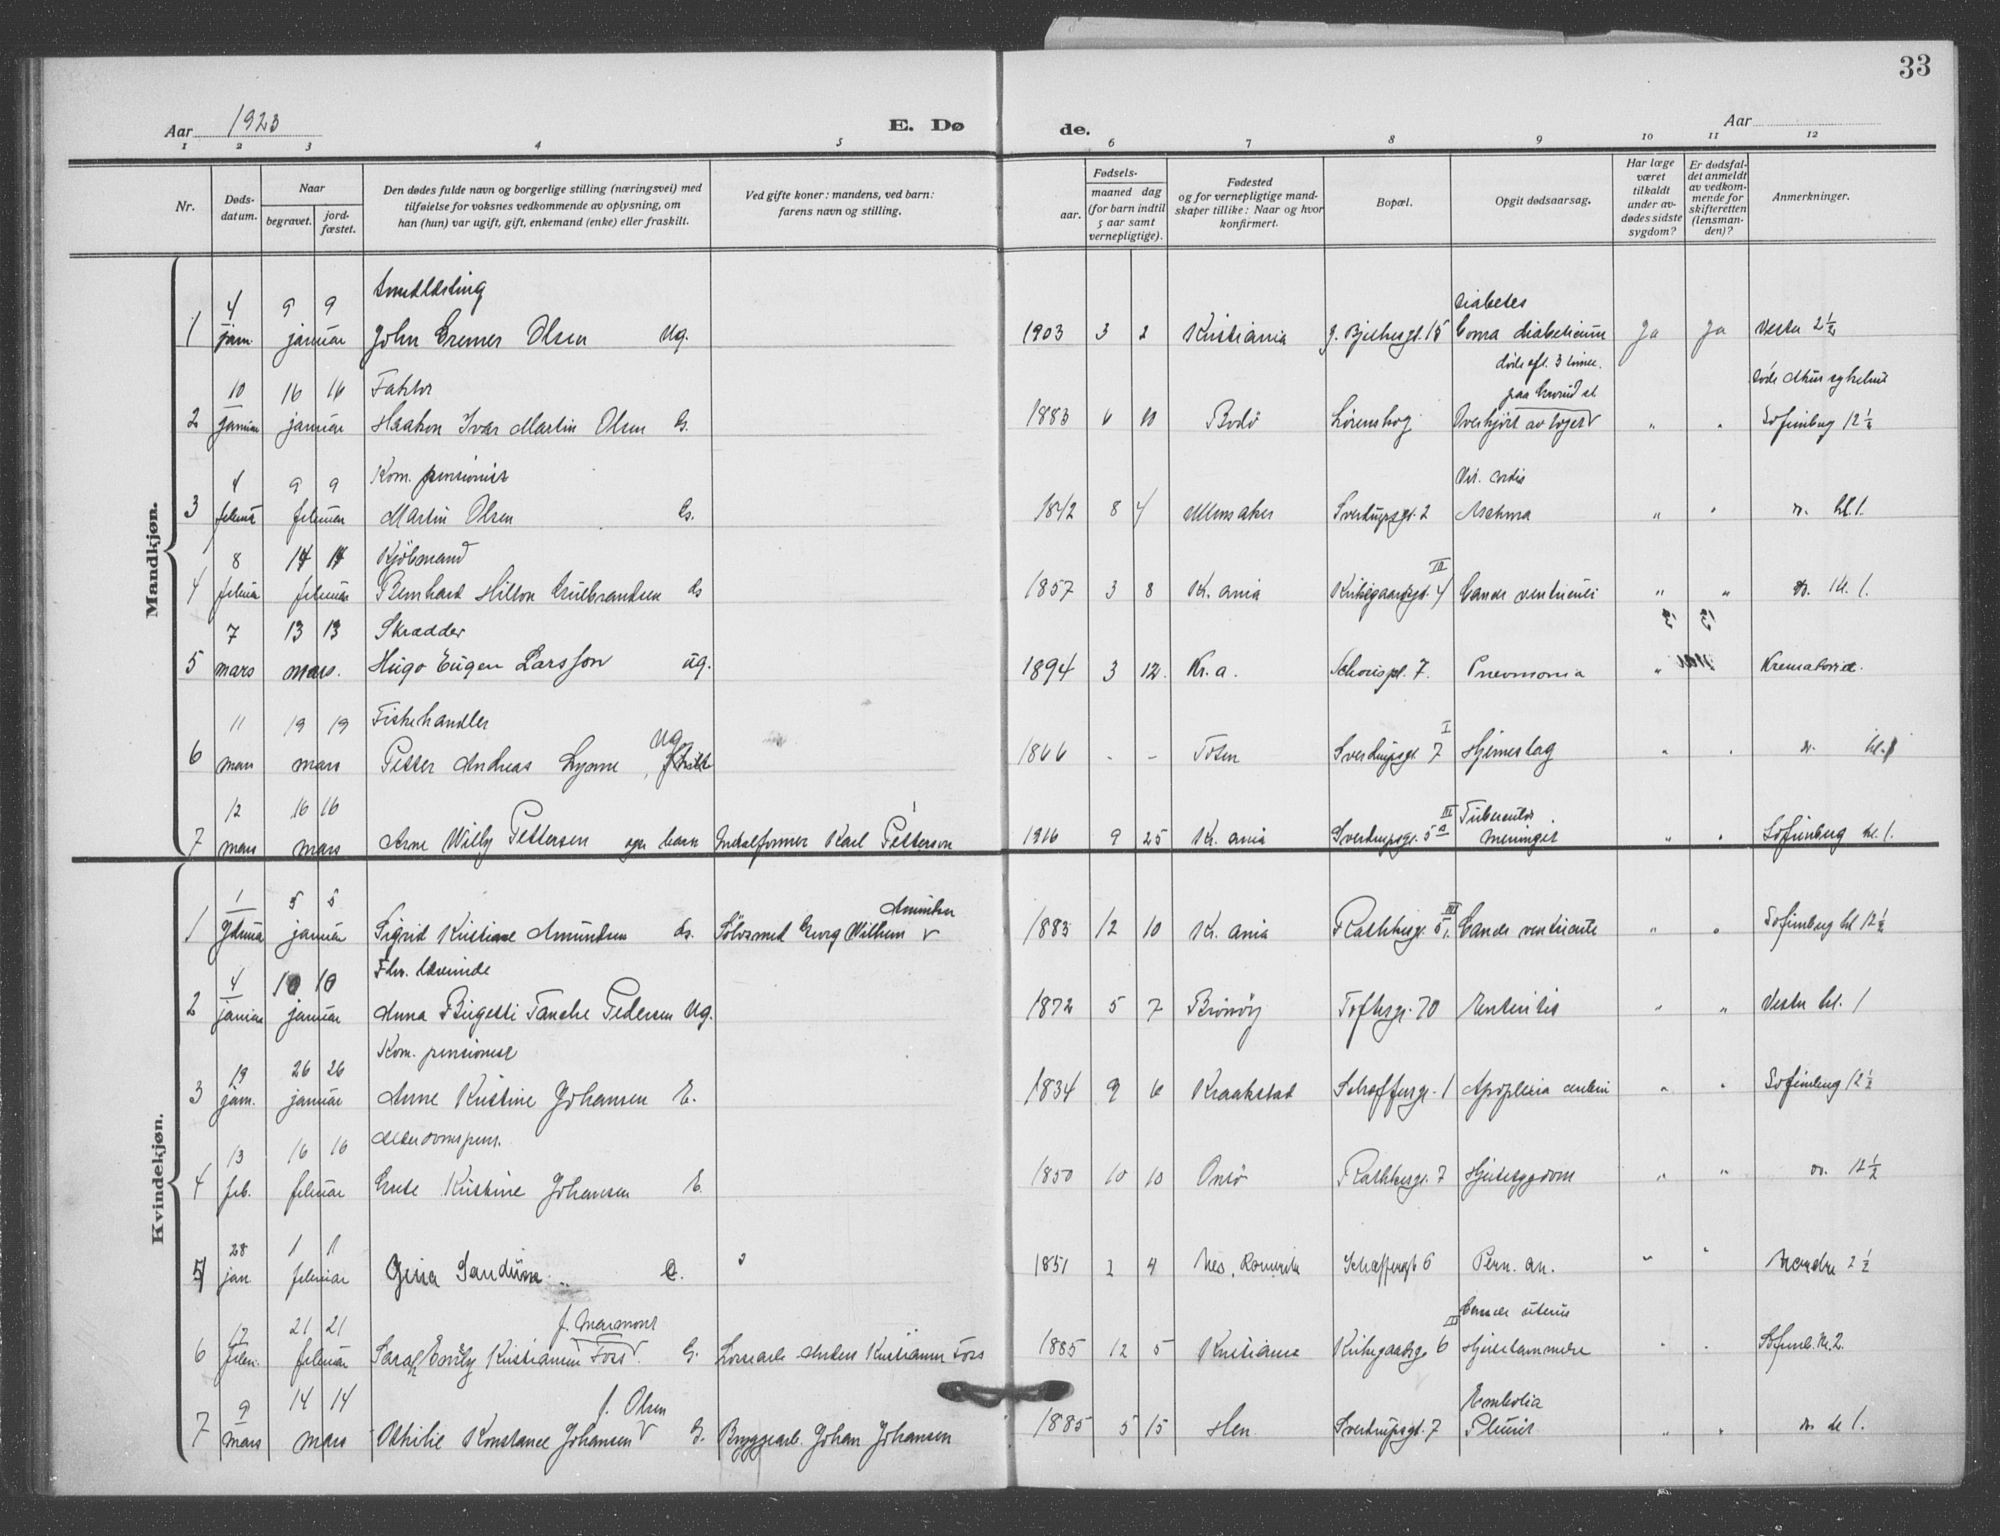 33
Aar 1923
E. Døde.
Aar
1 2 3 4 5 6 7 8 9 10 11 12
Nr.
Døds-datum.
Naar
begravet.
jord-fæstet.
Den dødes fulde navn og borgerlige stilling (næringsvei) med
tilføielse for voksnes vedkommende av oplysning, om
han (hun) var ugift, gift, enkemand (enke) eller fraskilt.
Ved gifte koner: mandens, ved barn:
farens navn og stilling.
Fødsels-
aar.
maaned dag
(for barn indtil
5 aar samt
vernepligtige).
Fødested
og for vernepligtige mand-
skaper tillike: Naar og hvor
konfirmert.
Bopæl.
Opgit dødsaarsag.
Har læge
været
tilkaldt
under av-
dødes sidste
sygdom?
Er dødsfal-
det anmeldt
av vedkom-
mende for
skifteretten
(lensman-
den)?
Anmerkninger.
Mandkjøn.
4 9 9 Diabetes
1 jan. januar John Olsen Ug. 1903 3 2 Kristiania 15 Coma diabeticum Ja Ja Vestre 2 1/2
døde eft. 3
10 16 16 Faktor
2 januar januar Haakon Ivar Martin Olsen G. 1883 6 10 Bodø Lørenskog Overkjørt av toget " " Sofienberg 12 1/2
4 9 9 Kom. pensionist Vit. cordis
3 februar februar Martin Olsen G. 1842 8 4 Ullensaker Sverdrupsgt. 2 Asthma " " do. kl. 1.
8 14 14 Kjøbmand III
4 februar februar Bernhard Hilton Gulbrandsen G 1857 3 8 Kr.ania Kirkegaardsgt. 4 Cancer ventriculi " " do. Kl. 1.
7 13 13 Skrædder
5 mars mars. Hugo Eugen Larsson ug. 1894 3 12. Kr.a. Schouspl. 7. Pnevmonia " Krematoriet.
11 19 19 Fiskehandler Ug. I
6 mars mars Petter Andreas 1866 - - Toten Sverdrupsgt. 7 Hjerneslag " " do. kl. 1
12 16 16 III Tuberculøs
7 mars mars Arne Willy Pettersen barn Karl Petterson 1916 9 25 Kr.ania Sverdrupsgt. 5 a meningit " " Sofienberg kl. 1.
Kvindekjøn.
1 5 5 Amundsen III
1 januar januar Sigrid Kristiane Amundsen G. Sølvsmed Georg Wilhelm 1883 12 10 Kr.ania Rathkesgt. 5 Cancer ventriculi " " Sofienberg kl 12 1/2
4 10 10 Fhv. lærerinde
2 januar januar Anna Birgitte Tanche Pedersen Ug. 1872 5 7 Brønnøy Toftesgt. 70 Enteritis " " Vestre kl. 1
19 26 26 Kom. pensionist
3 jan. januar Anne Kristine Johansen E. 1834 9 6 Kraakstad Schæffersgt. 1 Apoplexia cerebri " " Sofienberg 12 1/2
13 16 16 Alderdomspens.
4 feb. februar Grete Kristine Johansen E. 1850 10 10 Onsø Rathkesgt. 7 Hjertesygdom " " do. 12 1/2
28 1 1
5 jan. februar Gina Sandum E. 1851 2 4 Nes, Romerike Schæffersgt 6 Pern. an. " " Nordre 2 1/2
17 21 21 Cancer uterus
6 februar Sara Emily Kristiansen Foss G. Anders Kristiansen Foss 1885 12 5 Kristiania Kirkegaardsgt 6 Hjertelammelse " " Sofienb. kl. 2.
9 14 14 f. Olsen Embolia
7 mars mars Othilie Konstance Johansen G. Bryggearb. Johan Johansen 1885 5 15 Hen Sverdrupsgt. 7 Pleurit " " do kl 1.